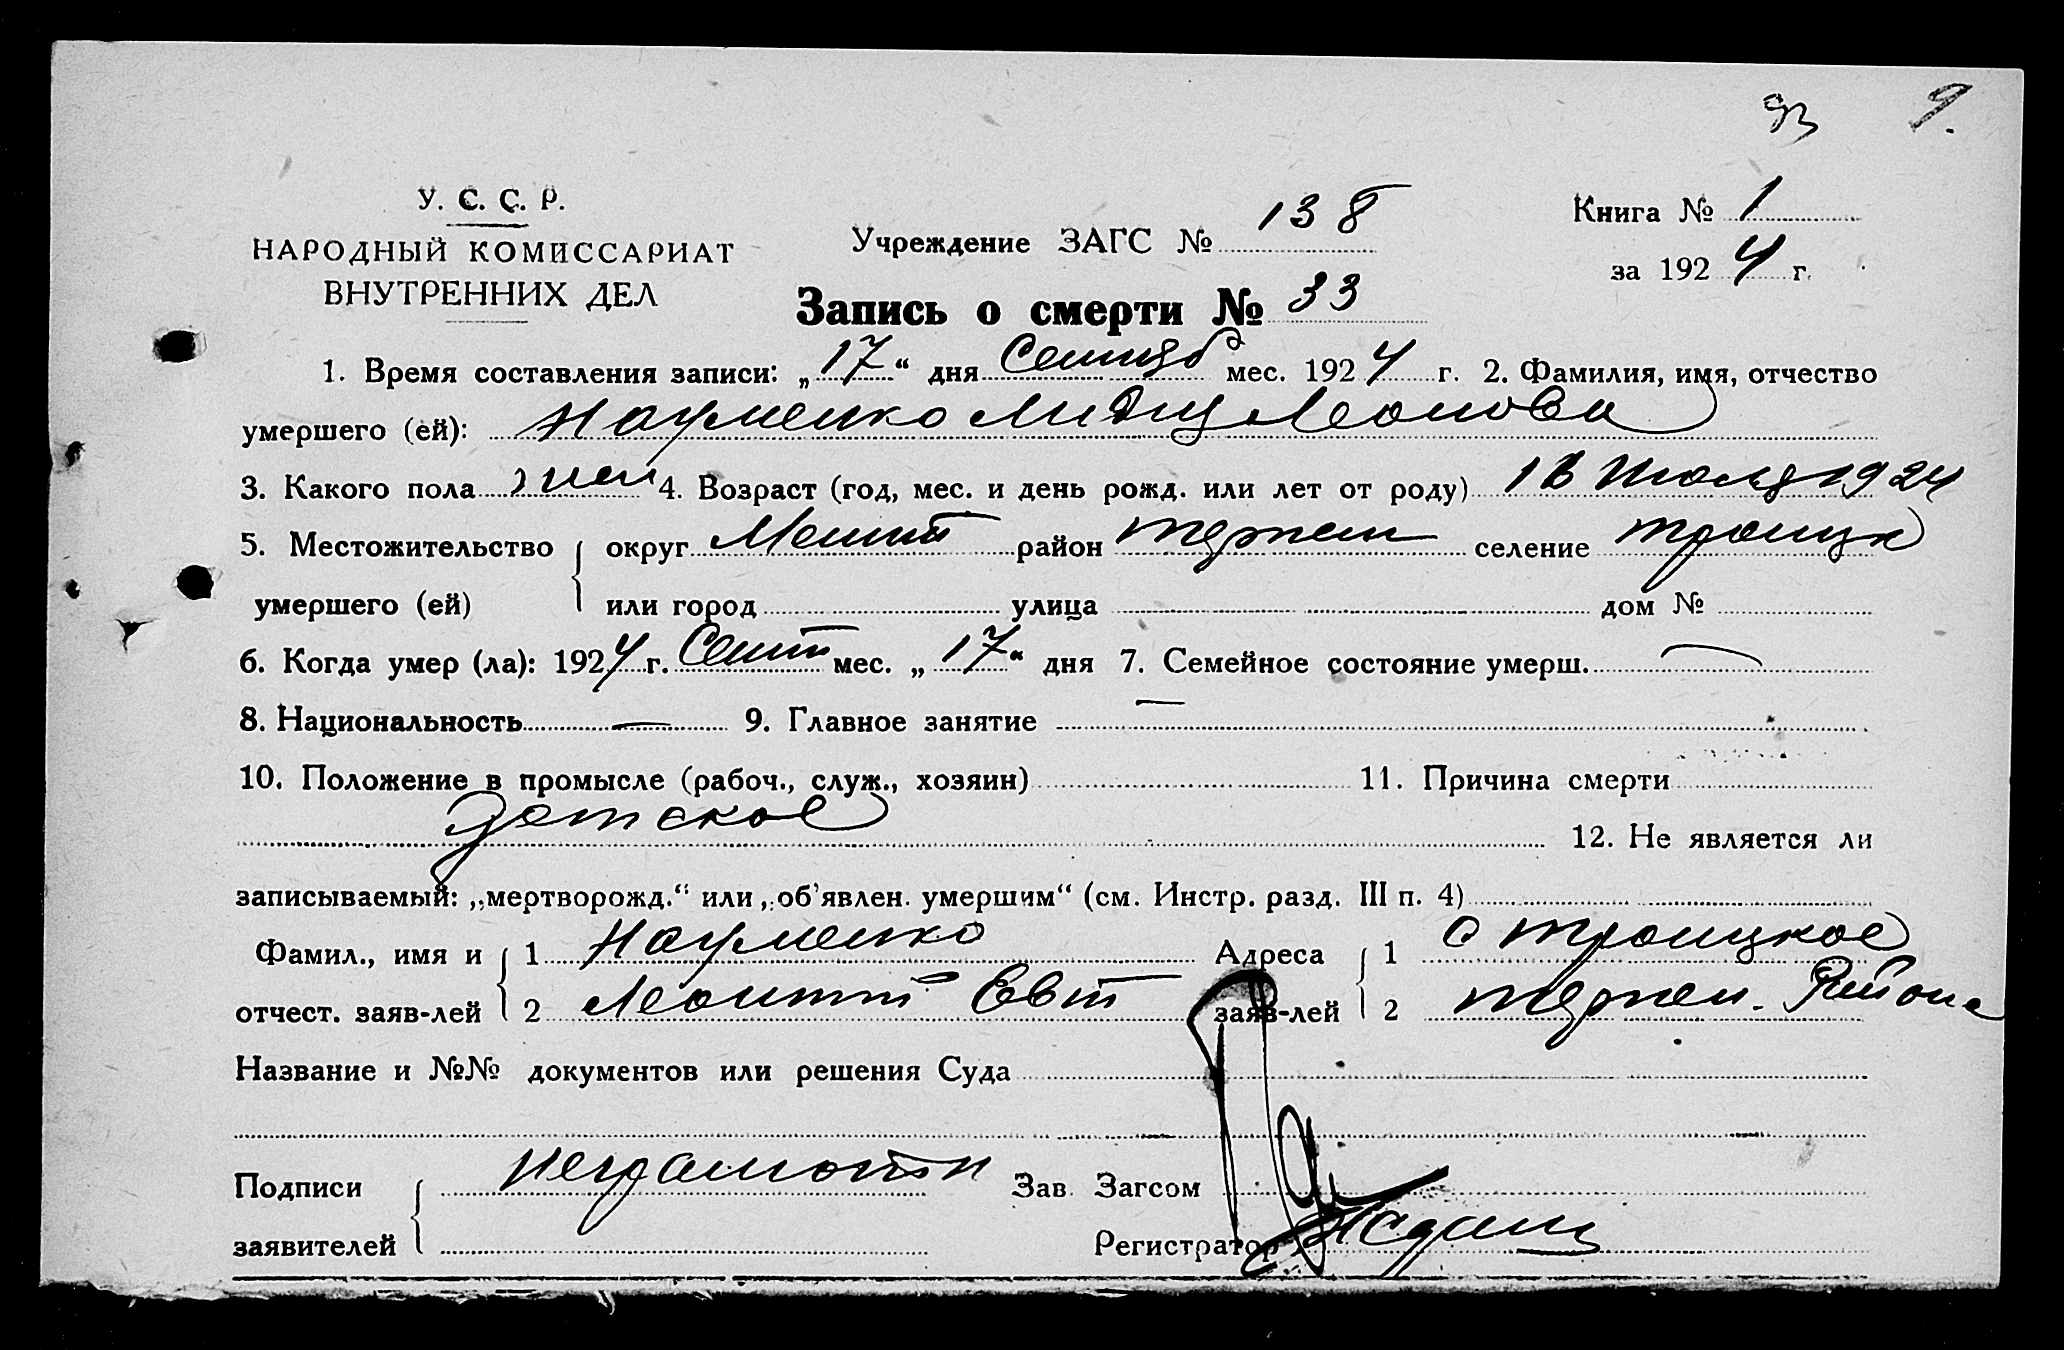 93 9.
У. С. С. Р.
НАРОДНЫЙ КОМИССАРИАТ
ВНУТРЕННИХ ДЕЛ
Учреждение ЗАГС № 138
Книга № 1
за 1924 г.
Запись о смерти № 33
1. Время составления записи: „17“ дня Сентяб мес. 1924 г. 2. Фамилия, имя, отчество
умершего (ей): Науменко Лидия Леонова
3. Какого пола жен 4. Возраст (год, мес. и день рожд. или лет от роду) 18 Июля 1924
5. Местожительство округ Мелит район Терпен селение Троицк
умершего (ей) или город улица дом №
6. Когда умер (ла): 1924 г. Сент мес. „17“ дня 7. Семейное состояние умерш. —
8. Национальность — 9. Главное занятие —
10. Положение в промысле (рабоч., служ., хозяин) 11. Причина смерти
детское 12. Не является ли
записываемый: „мертворожд.“ или „об'явлен. умершим“ (см. Инстр. разд. III п. 4)
Фамил., имя и 1 Науменко Адреса 1 с Троицкое
отчест. заяв-лей 2 Леонтий Евт заяв-лей 2 Терпен. Района
Название и №№ документов или решения Суда
Подписи неграмотн Зав. Загсом
заявителей Регистратор